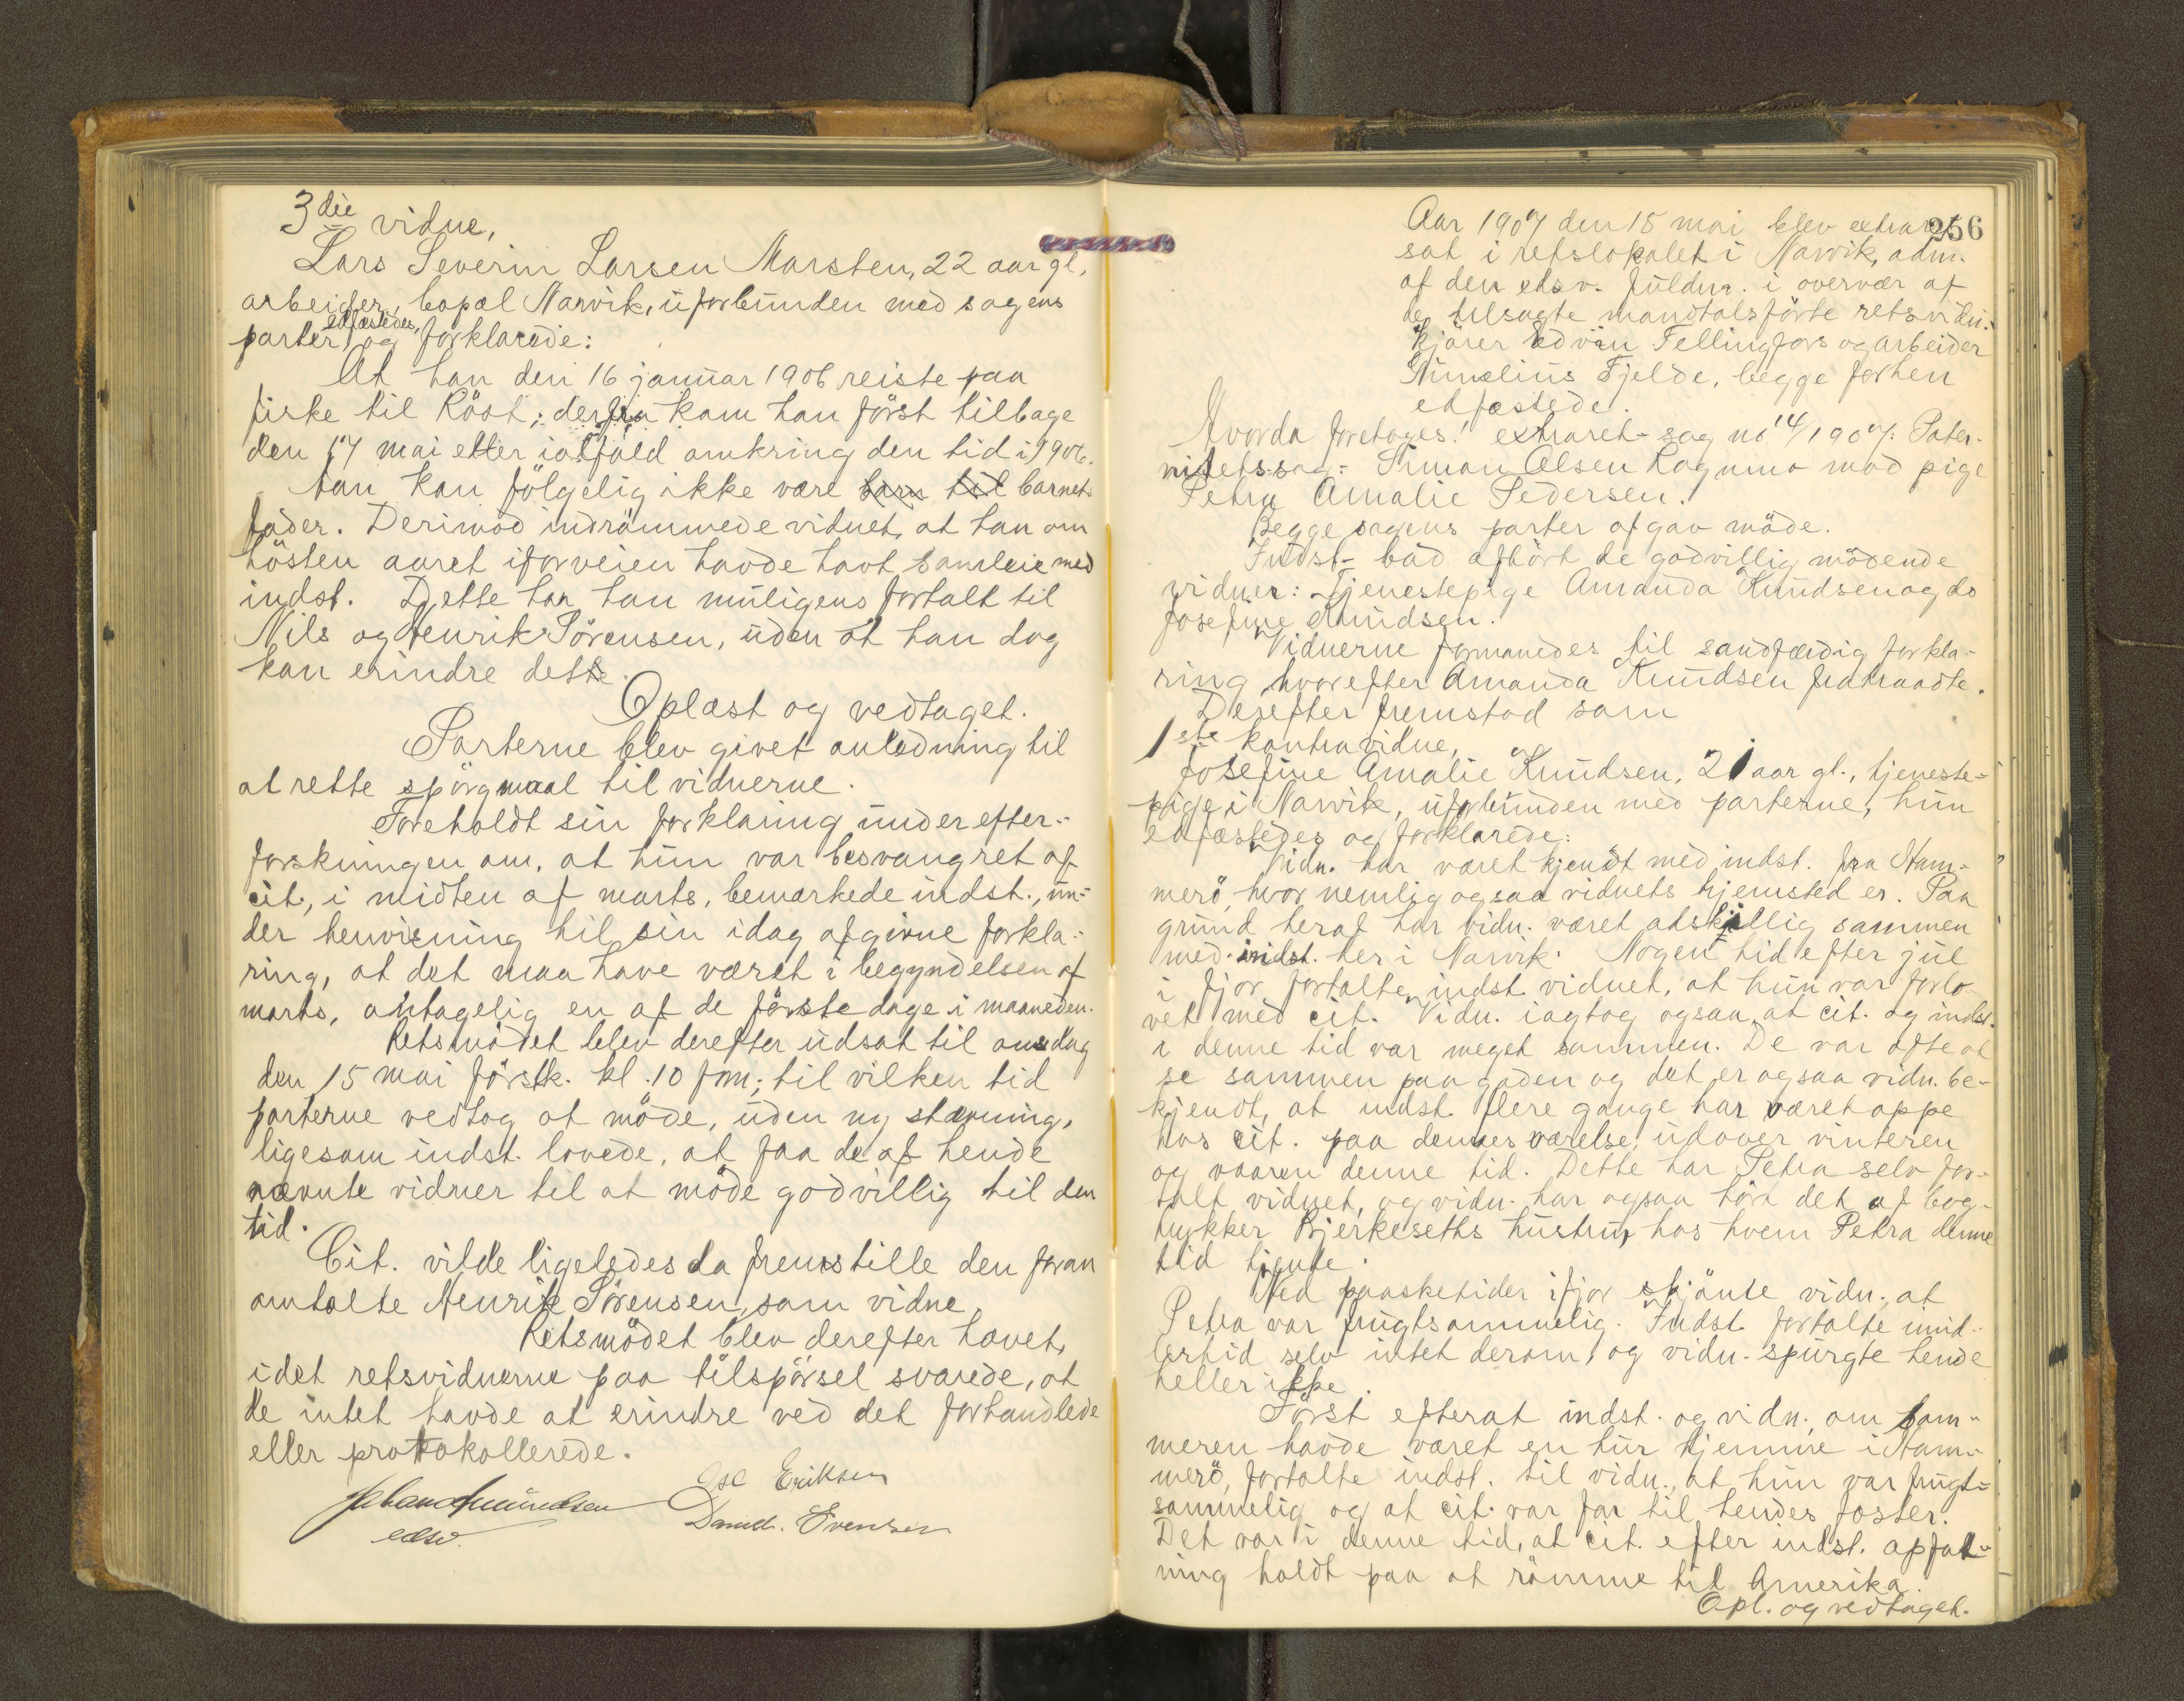 3die vidne,
Lars Severin Larsen Marsten, 22 aar gl.
arbeider, bopæl Narvik, uforbunden med sagens
parter, edfæstedes, og forklarede:
At han den 16 januar 1906 reiste paa
fiske til Röst; derfra kom han först tilbage
den 17 mai eller ialfald omkring den tid i 1906.
Han kan fölgelig ikke være barn til barnets
fader. Derimod indrömmede vidnet, at han om
hösten aaret iforveien havde havt samleie med
indst. Dette har han muligens fortalt til
Nils og Henrik Sörensen, uden at han dog
kan erindre dette.
Oplæst og vedtaget.
Parterne blev givet anledning til
at rette spörgmaal til vidnerne.
Foreholdt sin forklaring under efter-
forskningen om, at hun var besvangret af
cit., i midten af marts, bemærkede indst., un-
der henvisning til sin idag afgivne forkla-
ring, at det maa have været i begyndelsen af
marts, antagelig en af de förste dage i maaneden.
Retsmödet blev derefter udsat til onsdag
den 15 mai förstk. kl. 10 fm; til vilken tid
parterne vedtog at möde, uden ny stævning,
ligesom indst. lovede, at faa de af hende
nævnte vidner til at möde godvillig til den
tid.
Cit. vilde ligeledes da fremstille den foran
omtalte Henrik Sörensen, som vidne.
Retsmödet blev derefter hævet,
idet retsvidnerne paa tilspörsel svarede, at
de intet havde at erindre ved det forhandlede
eller protokollerede.
Eriksen
edsv. Evensen
256
Aar 1907 den 15 mai blev extraret
sat i retslokalet i Narvik, adm.
af den edsv. fuldm. i overvær af
de tilsagte mandtalsförte retsvidn:
kjörer Edvin Fellingfors og arbeider
Fjelde, begge forhen
edfæstede.
Hvorda foretoges: extraret-sag no 14/1907: Pater-
nitets-sag: Simon Olsen mod pige
Petra Amalie Pedersen.
Begge sagens parter afgav möde.
Indst. bad afhört de godvillig mödende
vidner: Tjenestepige Amanda Knudsen og do
Josefine Knudsen.
Vidnerne formanedes til sandfærdig forkla-
ring, hvorefter Amanda Knudsen fratraadte.
Derefter fremstod som
1ste kontravidne,
Josefine Amalie Knudsen, 21 aar gl., tjeneste-
pige i Narvik, uforbunden med parterne; hun
edfæstedes og forklarede:
Vidn. har været kjendt med indst. fra Ham-
merö, hvor nemlig ogsaa vidnets hjemsted er. Paa
grund heraf har vidn. været adskillig sammen
med indst. her i Narvik. Nogen tid efter jul
i fjor fortalte indst. vidnet, at hun var forlo-
vet med cit. Vidn. iagtog ogsaa, at cit. og indst.
i denne tid var meget sammen. De var ofte at
se sammen paa gaden og det er ogsaa vidn. be-
kjendt, at indst. flere gange har været oppe
hos cit. paa dennes værelse, udover vinteren
og vaaren denne tid. Dette har Petra selv for-
talt vidnet, og vidn. har ogsaa hört det af bog-
trykker Bjerkeseths hustru, hos hvem Petra denne
tid tjente.
Ved paasketider ifjor skjönte vidn., at
Petra var frugtsommelig. Indst. fortalte imid-
lertid selv intet derom, og vidn. spurgte hende
heller ikke.
Först efterat indst. og vidn. om som-
meren havde været en tur hjemme i Ham-
merö, fortalte indst. til vidn., at hun var frugt-
sommelig og at cit. var far til hendes foster.
Det var i denne tid, at cit. efter indst. opfat-
ning holdt paa at römme til Amerika.
Opl. og vedtaget.